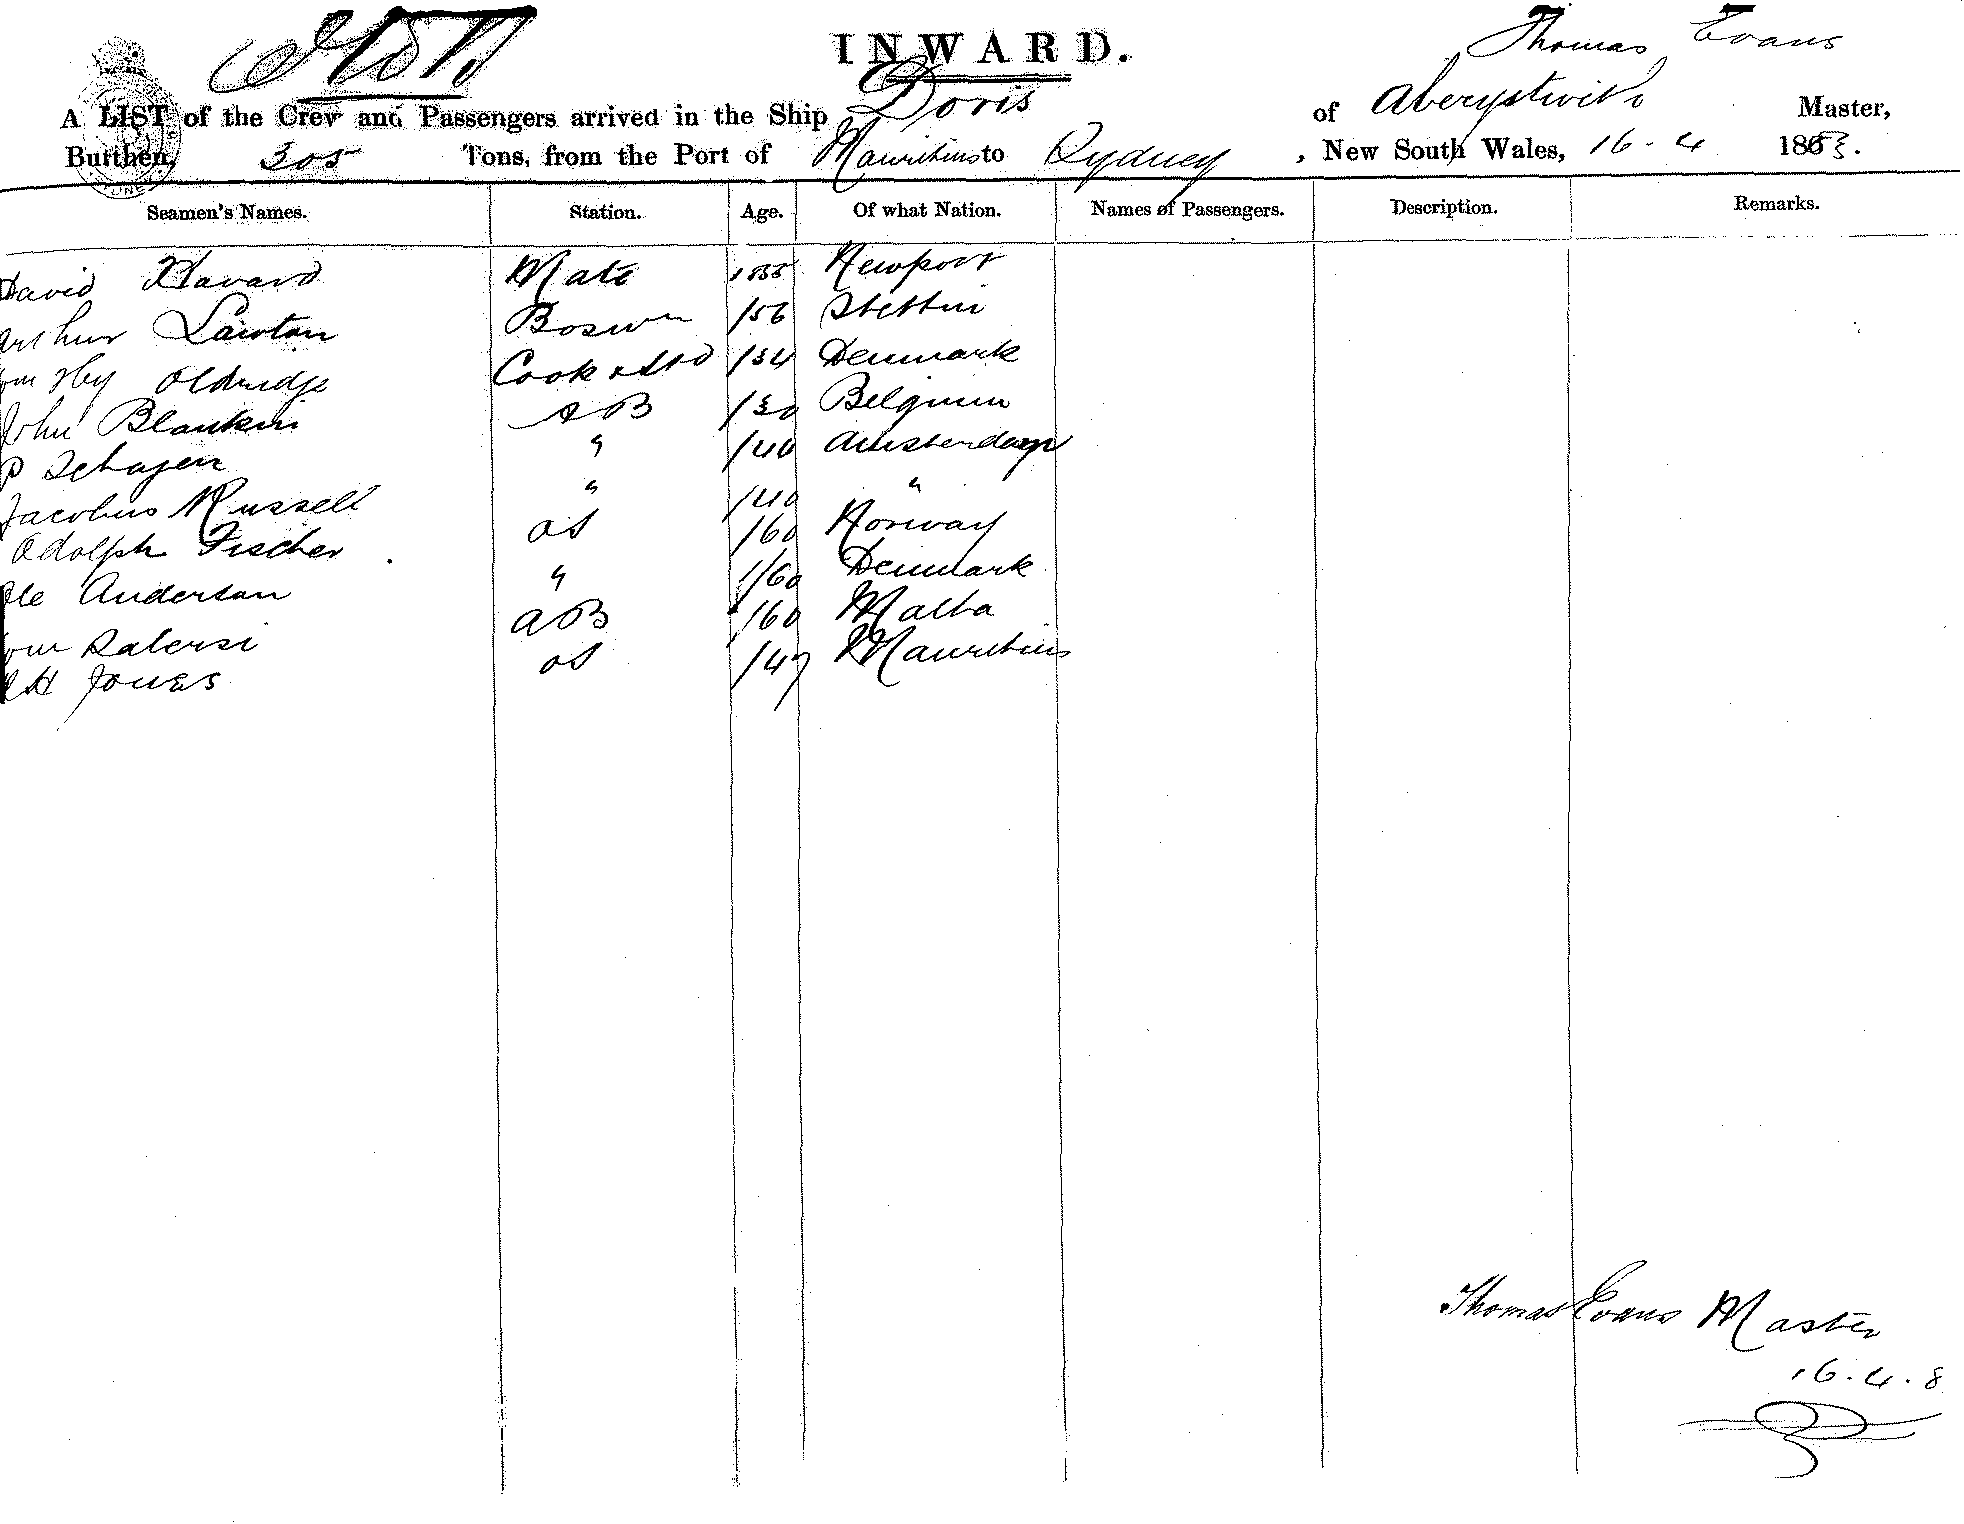 INWARD.
Thomas Evans
A LIST of the Crew and Passengers arrived in the Ship Doris of Aberystwith Master,
Burthen, 305 Tons, from the Port of Mauritius to Sydney, New South Wales, 16-4 1883.
Seamen's Names. Station. Age. Of what Nation. Names of Passengers. Description. Remarks.
David Havard Mate 1855 Newport
Arthur Lawton Boswn /56 Stettin
Wm Hy Oldridge Cook & Std /34 Denmark
John Blankin AB /30 Belgium
P Schagen " /40 Amsterdam
Jacobus Russell " /40 "
Adolph Fischer OS /60 Norway
Ole Anderson " 1/60 Denmark
Salersi AB /60 Malta
H Jones OS /47 Mauritius
Thomas Evans Master
16.4.8